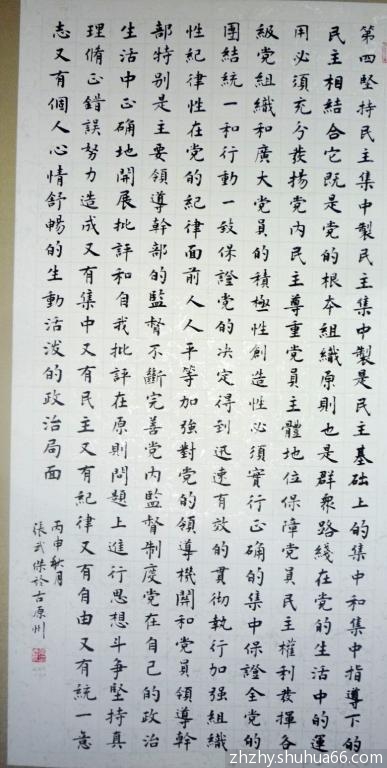 第四堅持民主集中製民主集中製是民主基礎上的集中和集中指導下的
民主相結合它既是黨的根本組織原則也是群衆路綫在黨的生活中的運
用必須充分發揚黨内民主尊重黨員主體地位保障黨員民主權利發揮各
級黨組織和廣大黨員的積極性創造性必須實行正确的集中保證全黨的
團結統一和行動一致保證黨的决定得到迅速有效的貫彻執行加强組織
性紀律性在黨的紀律面前人人平等加強對黨的領導機關和黨員領導幹
部特别是主要領導幹部的監督不斷完善黨内監督制度黨在自己的政治
生活中正确地開展批評和自我批評在原則問題上進行思想斗爭堅持真
理脩正錯誤努力造成又有集中又有民主又有紀律又有自由又有統一意
志又有個人心情舒暢的生動活潑的政治局面
丙申秋月
張武於古原州
zhzhy.shuhua66.com